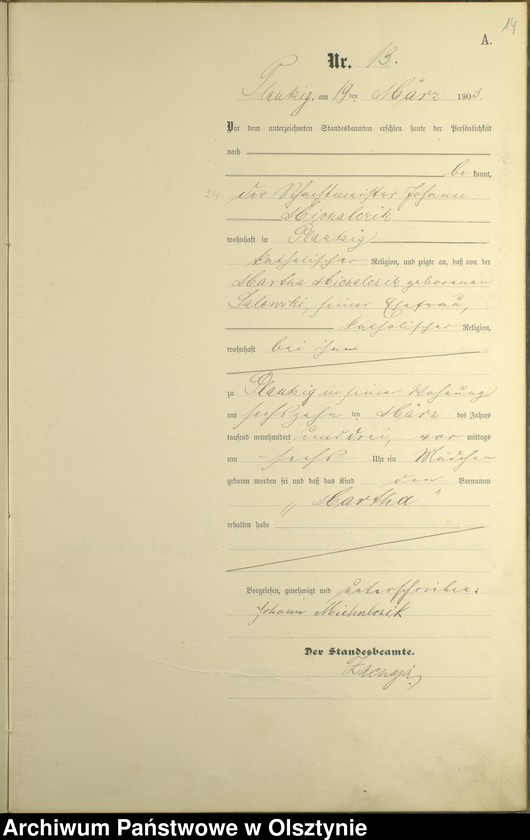 14
A.
Nr. 13.
Plautzig, am 19ten März 1903.
Vor dem unterzeichneten Standesbeamten erschien heute der Persönlichkeit
nach
be kannt,
24 der Schachtmeister Johann
Michalczik
wohnhaft in Plautzig
katholischer Religion, und zeigte an, daß von der
Martha Michalczik geborenen
Salewski, seiner Ehefrau,
katholischer Religion,
wohnhaft bei ihm
zu Plautzig in seiner Wohnung
am sechszehn ten März des Jahres
tausend neunhundert und drei, vor mittags
um sechs Uhr ein Mädchen
geboren worden sei und daß das Kind den Vornamen
„Martha“
erhalten habe
Vorgelesen, genehmigt und unterschrieben:
Johann Michalczik
Der Standesbeamte.
Archiwum Państwowe w Olsztynie